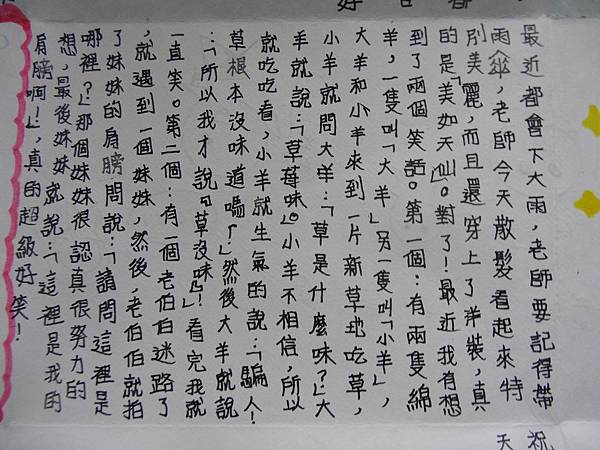 祝
天
最近都會下大雨,老師要記得帶
雨傘,老師今天散髮看起來特
別美麗,而且還穿上了洋裝,真
的是「美如天仙」。對了!最近我有想
到了兩個笑話。第一個:有兩隻綿
羊,一隻叫「大羊」另一隻叫「小羊」,
大羊和小羊來到一片新草地吃草,
小羊就問大羊:「草是什麼味?」大
羊就說:「草莓味。」小羊不相信,所以
就吃吃看,小羊就生氣的說:「騙人!
草根本沒味道嗎!」然後大羊就說
:「所以我才說『草沒味』!」看完我就
一直笑。第二個:有一個老伯伯迷路了
,就遇到一個妹妹,然後,老伯伯就拍
了妹妹的肩膀問說:「請問這裡是
哪裡?」那個妹妹很認真很努力的
想,最後妹妹就說:「這裡是我的
肩膀啊!」,真的超級好笑!